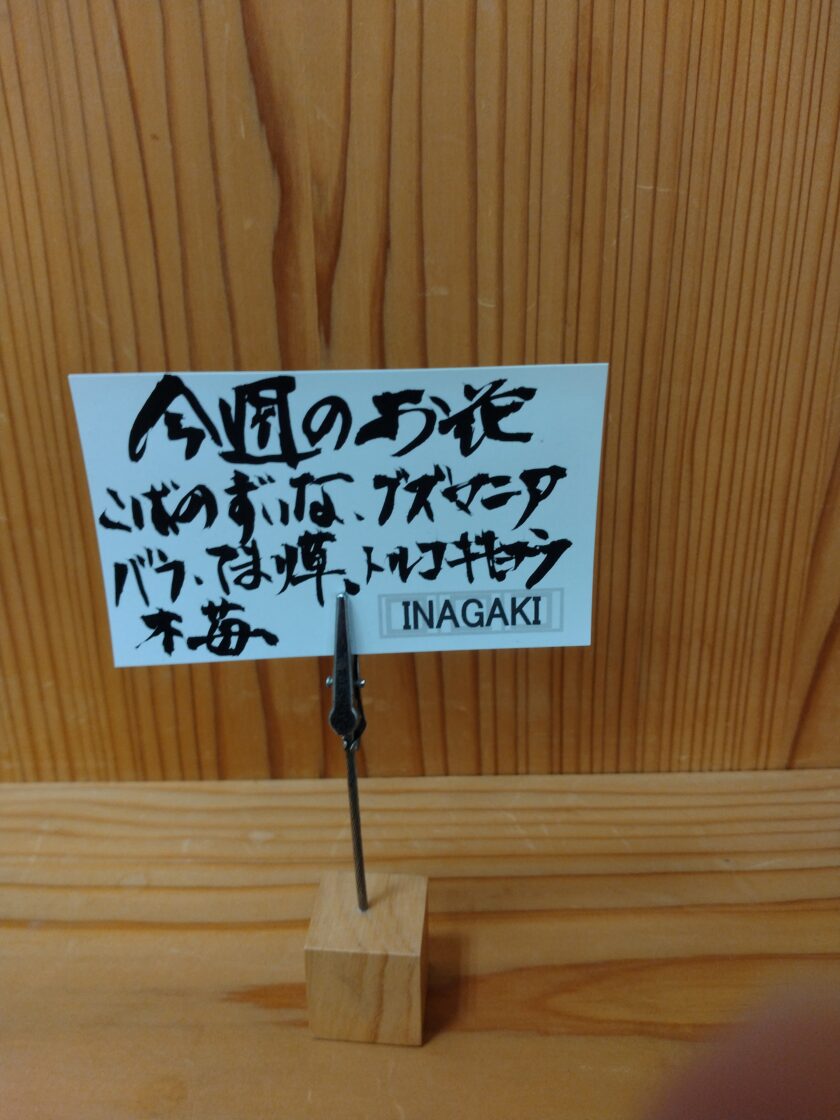 今週のお花
こばのずいな、グズマニア
バラ、てまり草、トルコキキョウ
木苺
INAGAKI